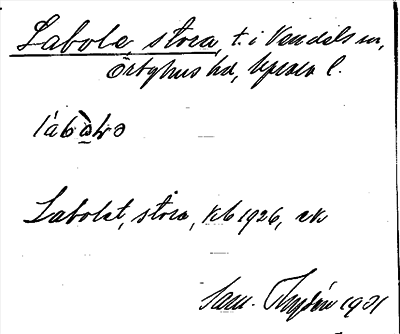 Labole, stora, t. i Vendels sn,
Örbyhus hd, Upsala l.
Labolet, stora, kb 1926, ek
Sam. 1931